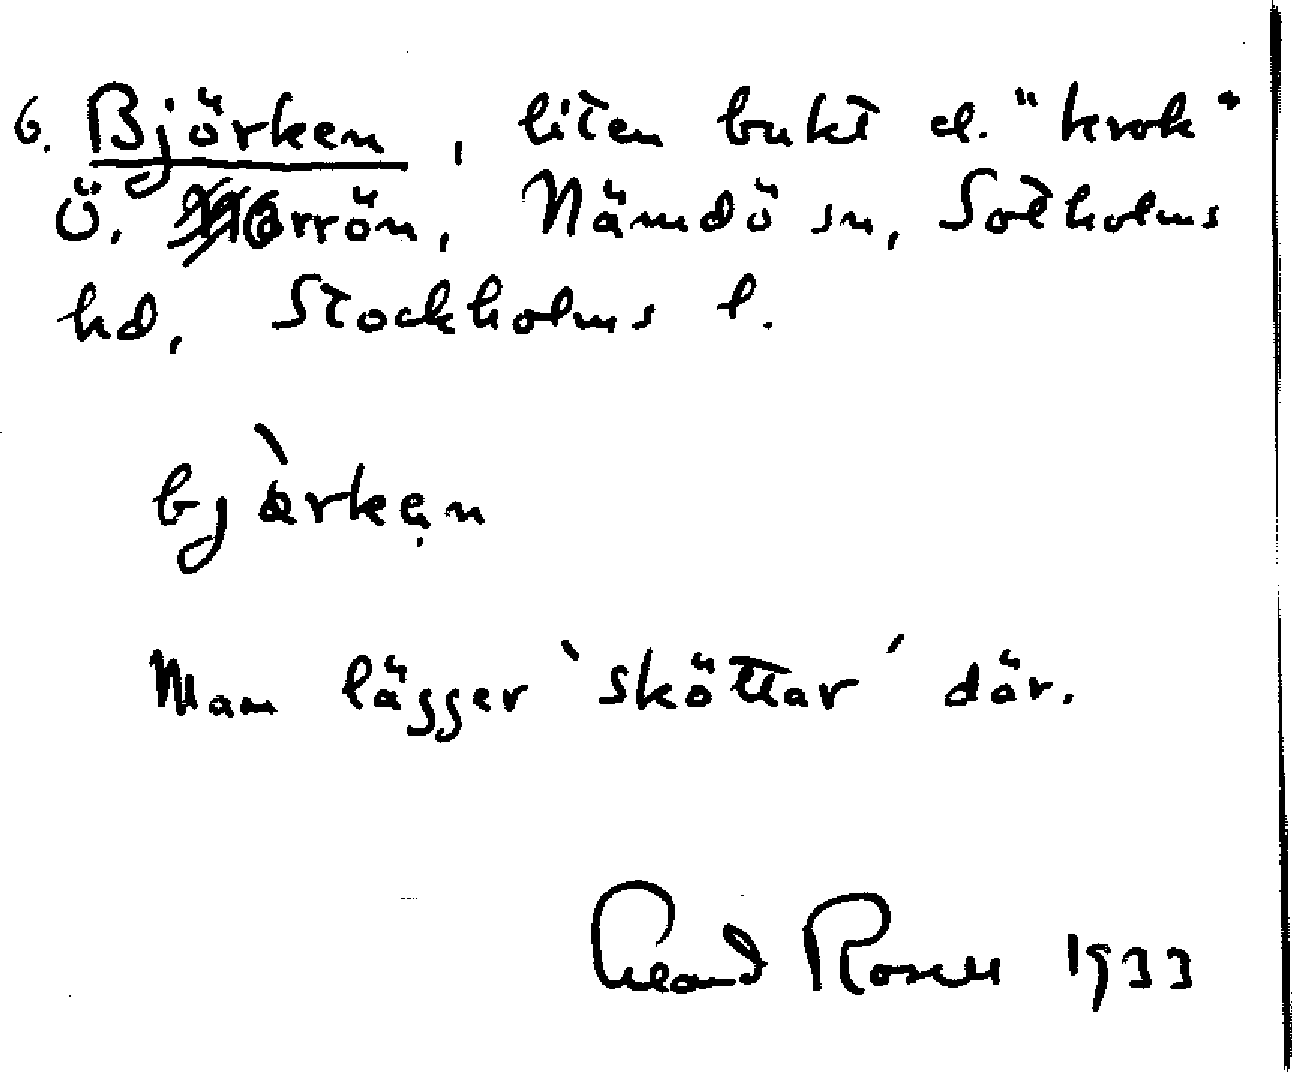 6. Björken, liten bukt el. "krok"
Ö. Morrön, Nämdö sn, Sotholms
hd, Stockholms l.
bjàrkẹn
Man lägger `sköttar´ där.
Rosell 1933